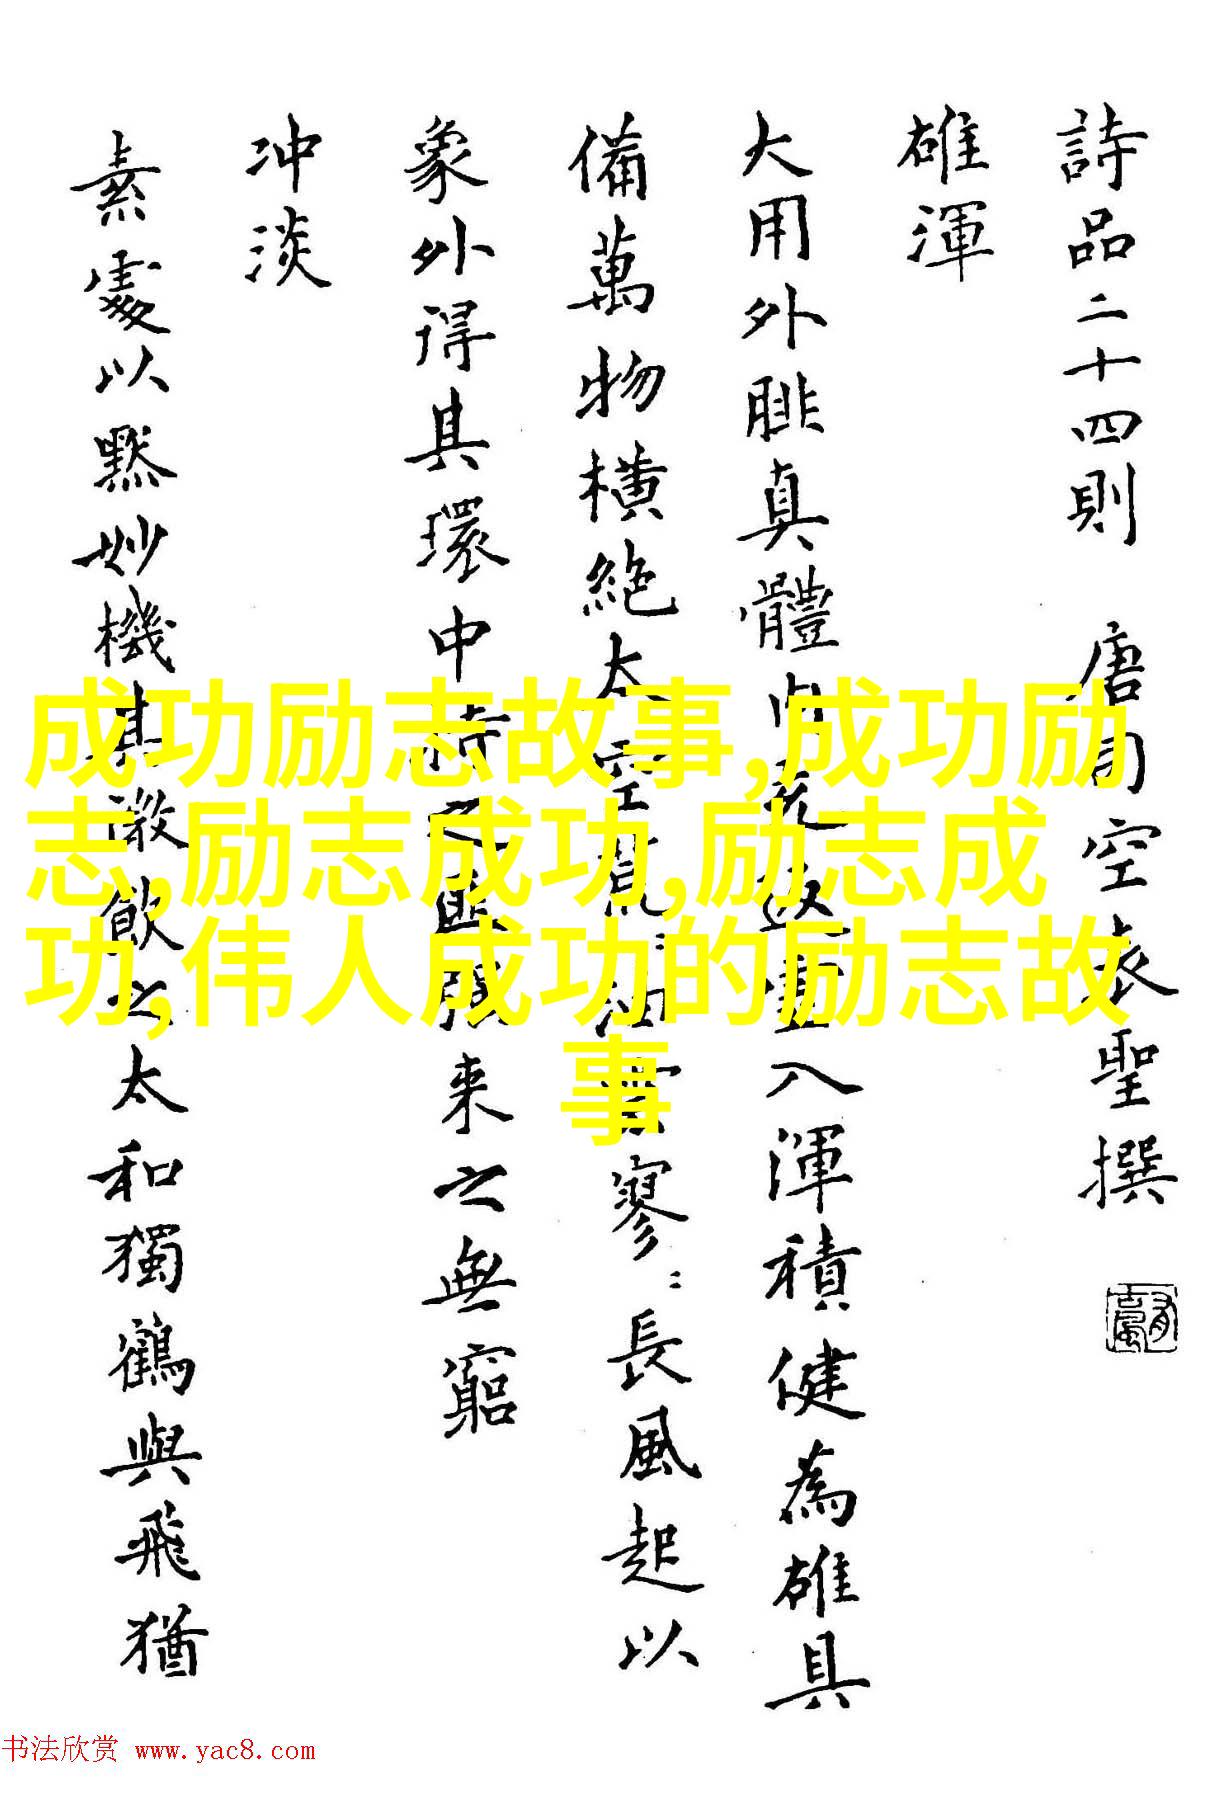 詩品二十四則 唐司空表聖撰
雄渾
大用外腓真體内充返虛入渾積健為雄具
備萬物橫絶太空荒〻油雲寥〻長風起以
象外得其環中持之匪強来之無窮
冲淡
素處以默妙機其微飲之太和獨鶴與飛猶
成功励志故事,成功励
志,励志成功,励志成
功,伟人成功的励志故
事
书法欣赏 www.yac8.com